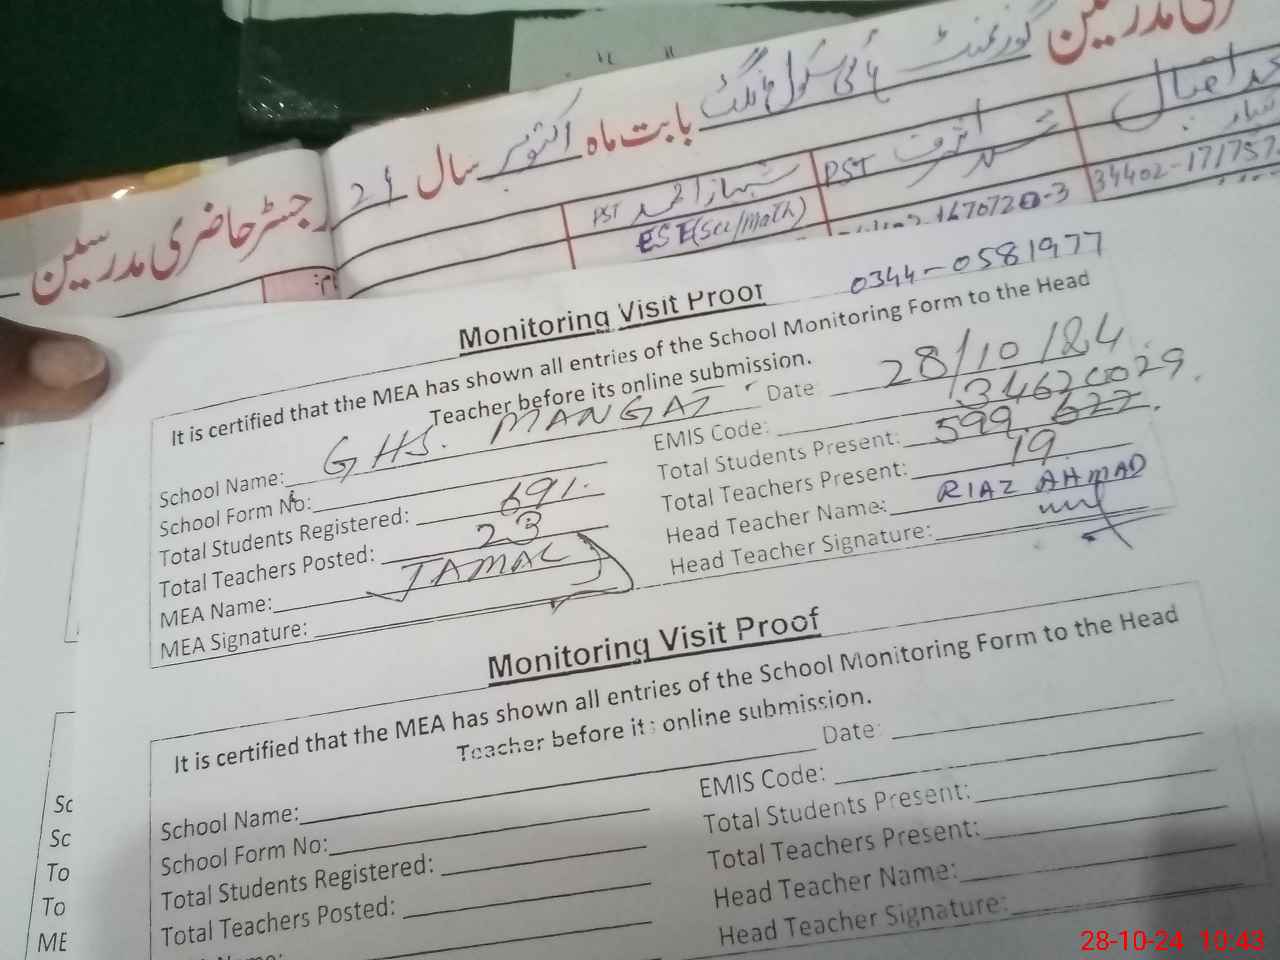 رجسٹر حاضری مدرسین
گورنمنٹ ہائی سکول مانگٹ بابت ماہ اکتوبر سال 24ء
مدرسین
PST شہباز احمد
ESE(Sci/Math)
PST محمد اشرف
34402-171757
0344-0581977
Monitoring Visit Proof
It is certified that the MEA has shown all entries of the School Monitoring Form to the Head
Teacher before its online submission.
School Name: GHS. MANGAT Date 28/10/24
School Form No: EMIS Code: 34620029
Total Students Registered: 691 Total Students Present: 599 622
Total Teachers Posted: 23 Total Teachers Present: 19
MEA Name: JAMAL Head Teacher Name: RIAZ AHMAD
MEA Signature: Head Teacher Signature:
Monitoring Visit Proof
It is certified that the MEA has shown all entries of the School Monitoring Form to the Head
Teacher before its online submission.
School Name: Date:
School Form No: EMIS Code:
Total Students Registered: Total Students Present:
Total Teachers Posted: Total Teachers Present:
Head Teacher Name:
Head Teacher Signature:
Sc
Sc
To
To
ME
28-10-24 10:43